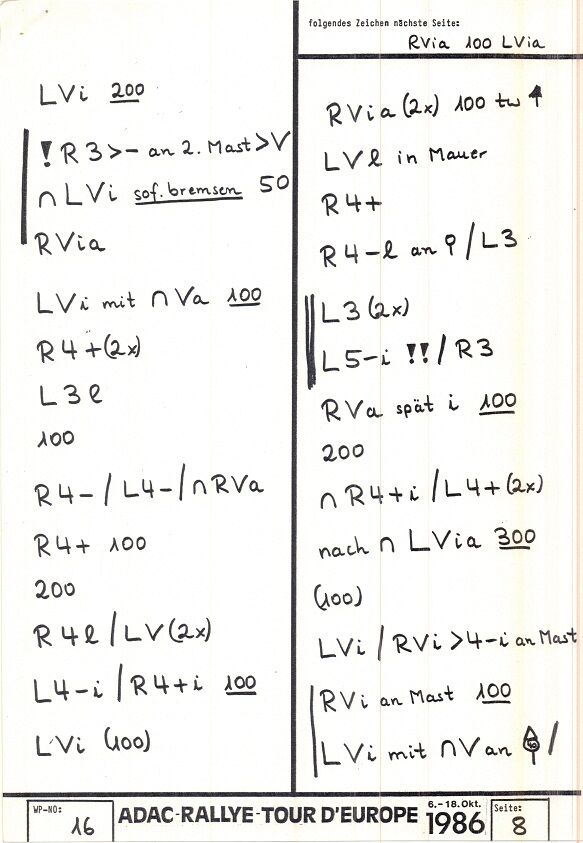 LVi 200
! R 3 > - an 2. Mast > V
∩ LVi sof. bremsen 50
RVia
LVi mit ∩ Va 100
R 4 + (2x)
L 3 l
100
R 4 - / L 4 - / ∩ RVa
R 4 + 100
200
R 4 l / LV (2x)
L 4 - i / R 4 + i 100
LVi (100)
folgendes Zeichen nächste Seite:
RVia 100 LVia
RVia (2x) 100 tw ↑
LVl in Mauer
R 4 +
R 4 - l an / L 3
L 3 (2x)
L 5 - i !! / R 3
RVa spät i 100
200
∩ R 4 + i / L 4 + (2x)
nach ∩ LVia 300
(100)
LVi / RVi > 4 - i an Mast
RVi an Mast 100
LVi mit ∩ V an /
WP-NO: 16
ADAC-RALLYE-TOUR D'EUROPE
6.-18. Okt.
1986
Seite: 8